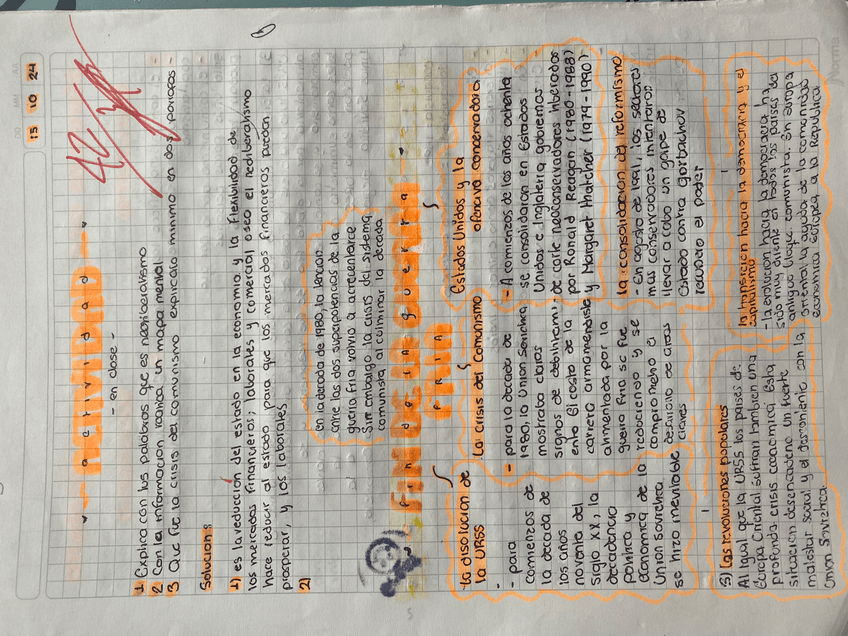 15 10 24
actividad
- en clase -
1 Explica con tus palabras que es neoliberalismo
2 Con la informacion realiza un mapa mental
3 Que fue la crisis del comunismo explicalo minimo en dos parrafos -
Solucion:
1) es la reducion del estado en la economia y la flexibilidad de
los mercados financieros; laborales y comercial osea el neoliberalismo
hace reducir al estado para que los mercados financieros puedan
prosperar, y los laborales
2)
en la decada de 1980, la tencion
entre las dos superpotencias de la
guerra fria volvio a
Sin embargo la crisis del sistema
comunista al culminar la decada
fin de la guerra
FRIA
la disolucion de
la URSS
- para
comienzos de
la decada de
los años
noventa del
siglo XX, la
decadencia
politica y
economica de la
Union sovietica
se hizo inevitable
La crisis del Comunismo
- para la decada de
1980, la Union Sovietica,
mostraba claros
signos de debilitami-
ento El costo de la
carrera armamendista
alimentada por la
guerra fria se fue
reduciendo y se
comprometio el
desarrollo de areas
claves
Estados Unidos y la
ofensiva conservadora
- A comienzos de los años ochenta
se consolidaron en Estados
Unidos e Inglaterra gobiernos
de corte neoconservadores liberados
por Ronald Reagan (1980-1988)
y Margaret thatcher (1979-1990)
la consolidacion del reformismo
- En agosto de 1991, los sectores
mas conservadores intentaron
llevar a cabo un golpe de
Estado contra gorbachov
recupero el poder
5) las revoluciones populares
Al igual que la URSS los paises de
Europa Oriental sufrian tambien una
profunda crisis economica Esta
situacion desencadeno un fuerte
malestar social y el descontento con la
Union Sovietica
la transicion hacia la democracia y el
capitalismo
- la evolucion hacia la democracia ha
sido muy difente en todos los paises del
antiguo bloque comunista. En europa
oriental la ayuda de la comunidad
economica europea a la Republica
norma